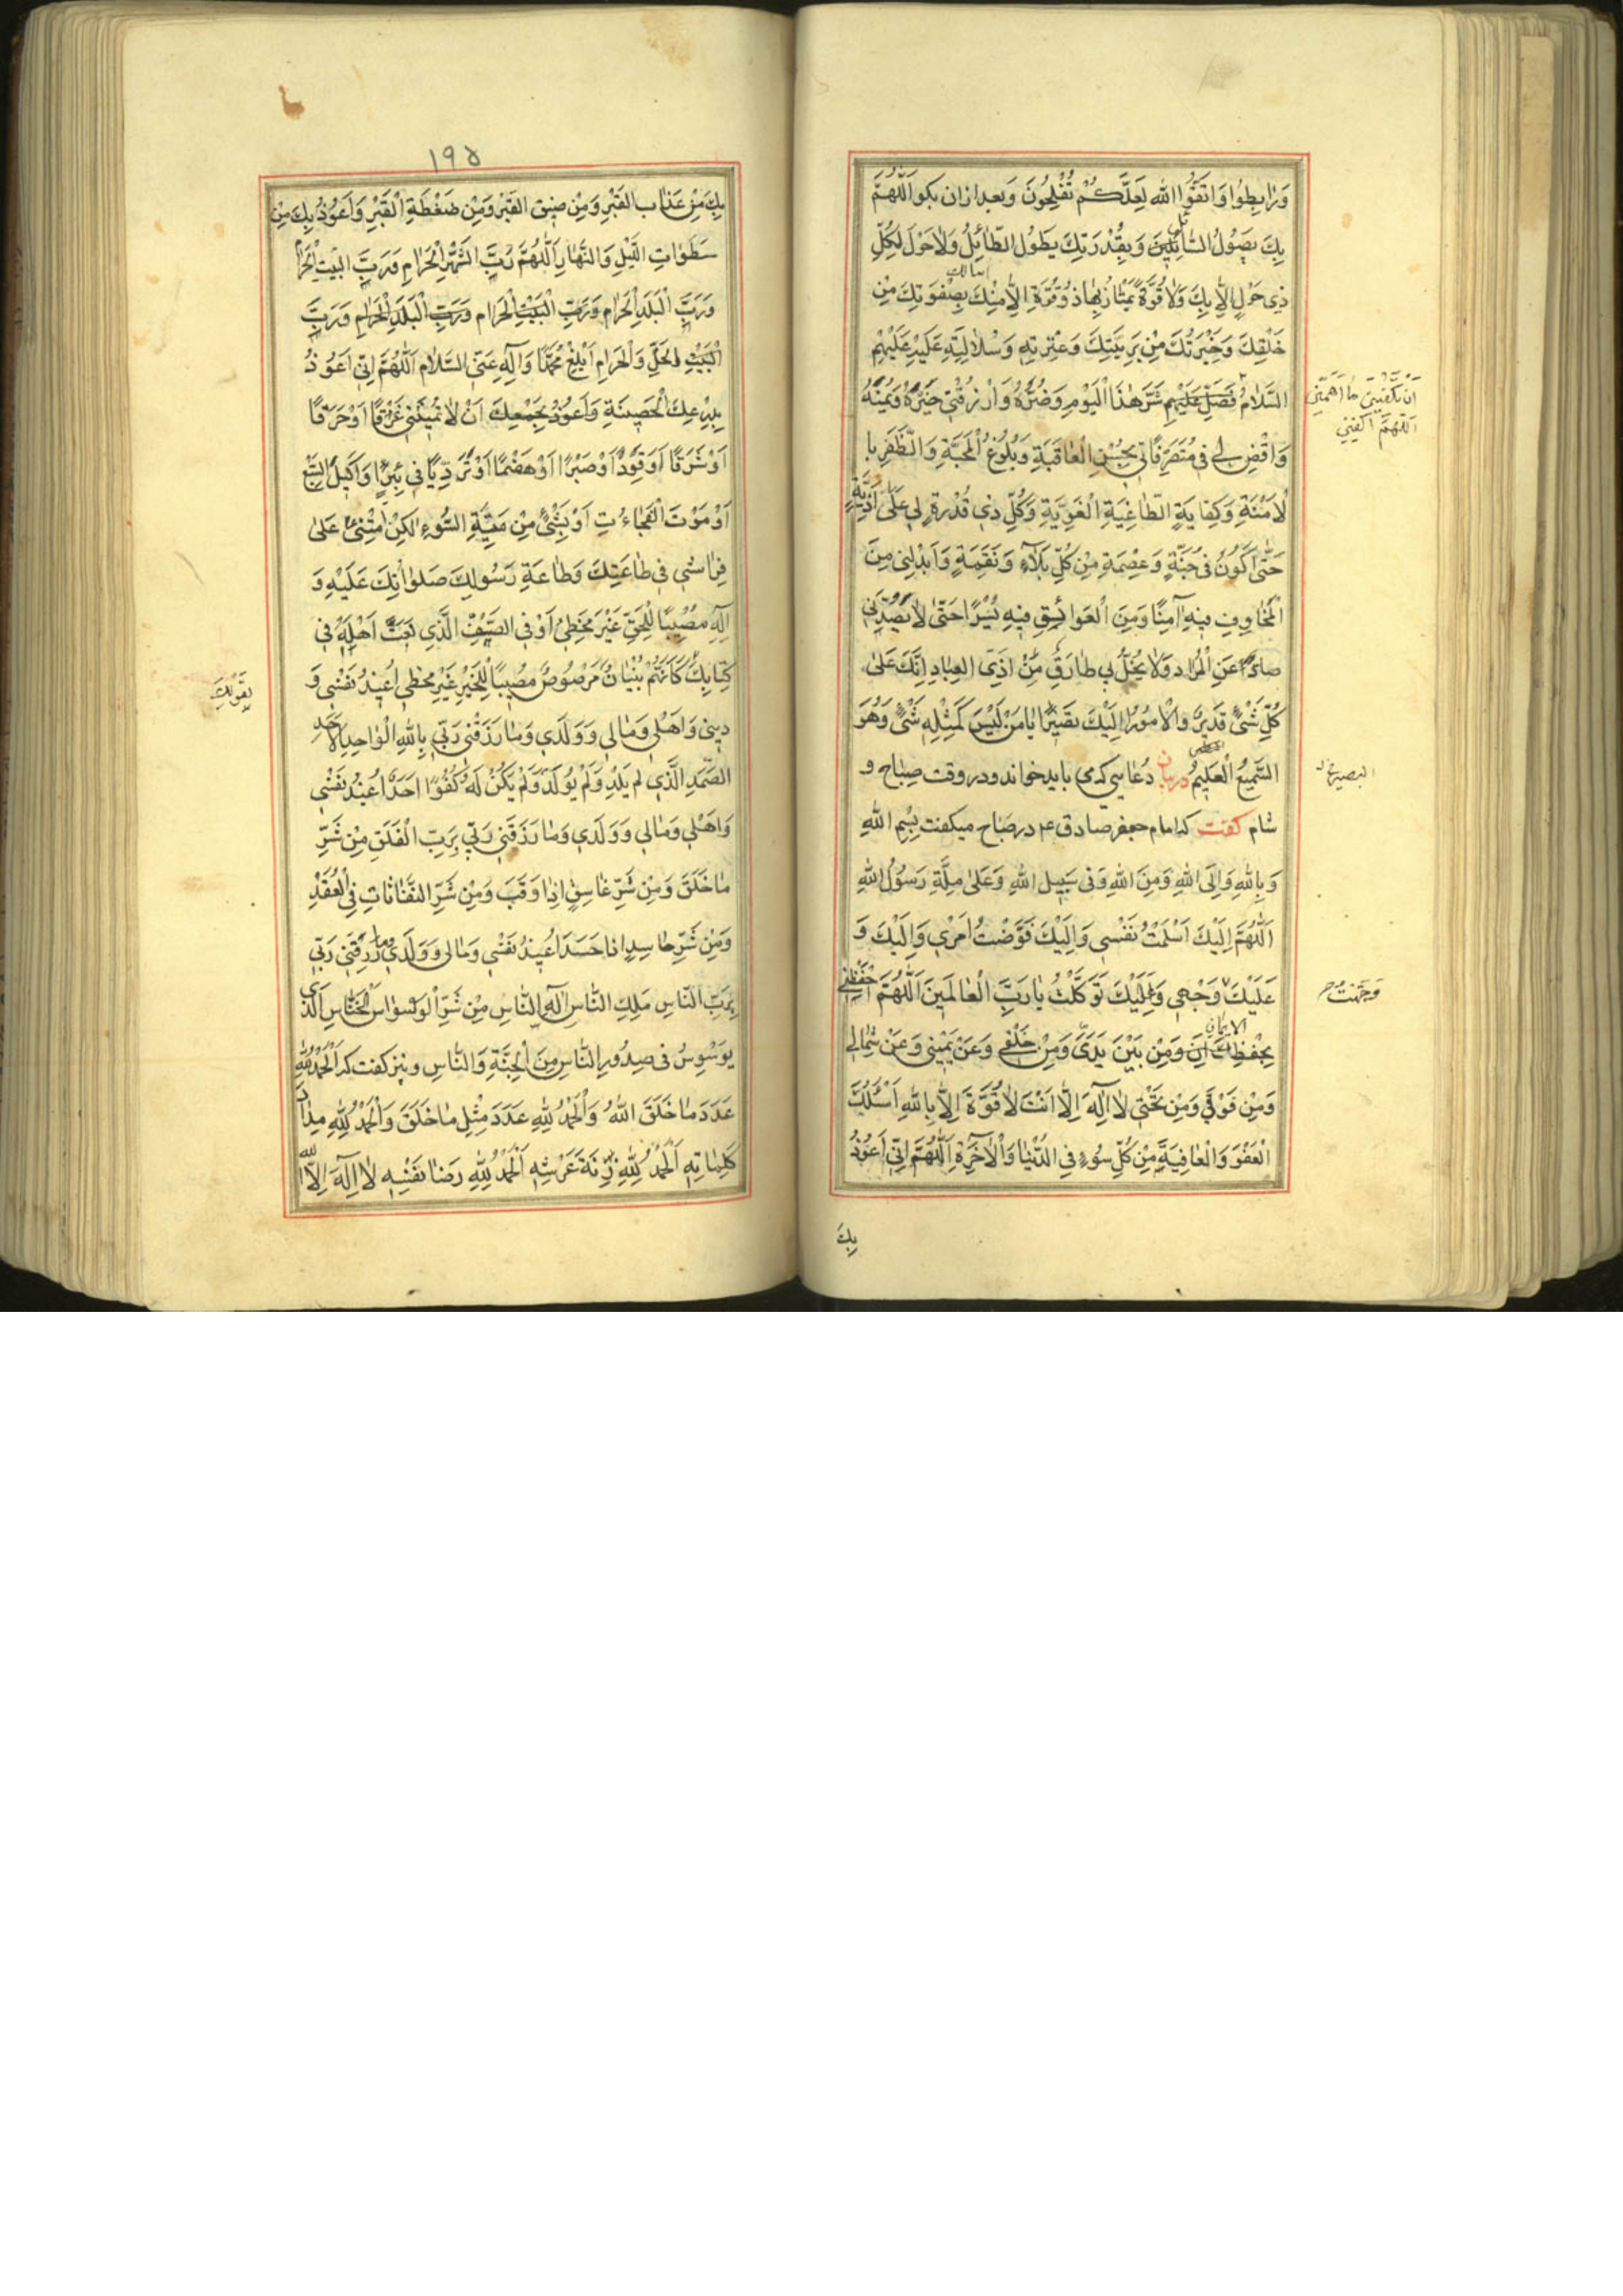 وَرٰابِطُوا وَاتَّقُوا اللّٰه لَعَلَّكُمْ تُفْلِحُونَ وَبعد ازان بكو اَللّٰهُمَّ
بِكَ يَصُوْلُ الصّٰائِلُ وَبِقُدْرَتِكَ يَطُوْلُ الطّٰائِلُ وَلاٰحَوْلَ لِكُلِّ
ذِى حَوْلٍ اِلاّٰ بِكَ وَلاٰ قُوَّةَ يَمْتٰازُ بِهٰا ذُوقُوَّةٍ اِلاّٰ مِنْكَ
اسالك
بِصَفْوَتِكَ مِنْ
خَلْقِكَ وَخِيَرَتُكَ مِنْ بَرِيَّتِكَ وَعِتْرَتِهِ وَسُلاٰلَتِهِ عَلَيْهِ عَلَيْهِمْ
السَّلاٰمُ فَصَلِّ عَلَيْهِمْ شَرَّ هٰذَا الْيَوْمِ وَضُرَّهُ وَارْزُقْنِى خَيْرَهُ وَيُمْنَهُ
اَنْ تَكْفِيَنِى مٰا اَهَمَّنِى
اَللّٰهُمَّ اكْفِنِى
وَاقْضِ لِى فِى مُتَصَرِّفٰاتِى بِحُسْنِ الْعٰاقِبَةِ وَبُلُوغِ الْمَحَبَّةِ وَالظَّفَرِ با
لاُمْنِيَّةِ وَكِفٰايَةِ الطّٰاغِيَةِ الْغَوِيَّةِ وَكُلِّ ذِى قُدْرَةٍ لِى عَلٰى اَذِيَّةٍ
حَتّٰى اَكُوْنَ فِى جُنَّةٍ وَعِصْمَةٍ مِنْ كُلِّ بَلاٰءٍ وَنَقِمَةٍ وَاَبْدِلْنِى مِنَ
الْمَخٰاوِفِ فِيهِ اٰمِنًا وَمِنَ الْعَوٰائِقِ فِيهِ يُسْرًا حَتّٰى لاٰ يَصُدَّنِى
صٰادٌّ عَنِ الْمُرٰادِ وَلاٰ يَحُلَّ بِى طٰارِقٌ مِنْ اَذِىَّ الْعِبٰادِ اِنَّكَ عَلٰى
كُلِّ شَىْءٍ قَدِيْرٌ وَالْاُمُورُ اِلَيْكَ تَصِيْرُ يٰا مَنْ لَيْسَ كَمِثْلِهِ شَىْءٌ وَهُوَ
السَّمِيْعُ الْعَلِيمُ دربيان دُعٰايى كه مى بايد خواند ودر وقت صباح و
البصير
شام كفت كه امام جعفر صادق ع در صَباح ميكفت بِسْمِ اللّٰهِ
وَبِاللّٰهِ وَاِلَى اللّٰهِ وَمِنَ اللّٰهِ وَفِى سَبِيلِ اللّٰهِ وَعَلٰى مِلَّةِ رَسُولِ اللّٰهِ
اَللّٰهُمَّ اِلَيْكَ اَسْلَمْتُ نَفْسِى وَاِلَيْكَ فَوَّضْتُ اَمْرِى وَاِلَيْكَ وَ
عَلَيْكَ وَجْهِى وَعَلَيْكَ تَوَكَّلْتُ يٰا رَبَّ الْعٰالَمِيْنَ اَللّٰهُمَّ احْفَظْنِى
وَجَّهْتُ
الايمان
بِحِفْظِكَ وَمِنْ بَيْنَ يَدَىَّ وَمِنْ خَلْفِى وَعَنْ يَمِيْنِى وَعَنْ شِمٰالِى
وَمِنْ فَوْقِى وَمِنْ تَحْتِى لاٰ اِلٰهَ اِلاّٰ اَنْتَ لاٰ قُوَّةَ اِلاّٰ بِاللّٰهِ اَسْئَلُكَ
الْعَفْوَ وَالْعٰافِيَةَ مِنْ كُلِّ سُوْءٍ فِى الدُّنْيٰا وَالْاٰخِرَةِ اَللّٰهُمَّ اِنِّى اَعُوْذُ
بِكَ
١٩٥
بِكَ مِنْ عَذٰابِ الْقَبْرِ وَمِنْ ضِيقِ الْقَبْرِ وَمِنْ ضَغْطَةِ الْقَبْرِ وَاَعُوْذُ بِكَ مِنْ
سَطَوٰاتِ اللَّيْلِ وَالنَّهٰارِ اَللّٰهُمَّ رَبَّ الشَّهْرِ الْحَرٰامِ وَرَبَّ الْبَيْتِ الْحَرٰا
وَرَبَّ الْبَلَدِ الْحَرٰامِ وَرَبِّ الْبَيْتِ الْحَرٰامِ وَرَبِّ الْبَلَدِ الْحَرٰامِ وَرَبَّ
الْبَيْتِ الحِلِّ وَالْحَرٰامِ اَبْلِغْ مُحَمَّدًا وَاٰلِهِ عَنِّى السَّلاٰمَ اَللّٰهُمَّ اِنِّى اَعُوْذُ
بِدِرْعِكَ الْحَصِيْنَةِ وَاَعُوْذُ بِجَمْعِكَ اَنْ لاٰ تُمِيْتَنِى غَرَقًا اَوْ حَرَقًا
اَوْ شَرَقًا اَوْ قَوَدًا اَوْ صَبْرًا اَوْ هَضْمًا اَوْ تَرَدِّيًا فِى بِئْرٍ اَوْ اَكِيْلَ السَّبُعِ
اَوْ مَوْتَ الْفُجٰاءَتِ اَوْ بِشَىْءٍ مِنْ مِيْتَةِ السُّوْءِ لٰكِنْ اَمِتْنِى عَلٰى
فِرٰاشِى فِى طٰاعَتِكَ وَطٰاعَةِ رَسُولِكَ صَلَوٰاتُكَ عَلَيْهِ وَ
اٰلِهِ مُصِيْبًا لِلْحَقِّ غَيْرَ مُخْطِىءٍ اَوْ فِى الصَّفِّ الَّذِى نَعَتَّ اَهْلَهُ فِى
كِتٰابِكَ كَاَنَّهُمْ بُنْيٰانٌ مَرْصُوْصٌ مُصِيْبًا لِلْخَيْرِ غَيْرَ مُخْطِى اُعِيْذُ نَفْسِى وَ
بِقَوْلِكَ
دِيْنِى وَاَهْلِى وَمٰالِى وَوَلَدِى وَمٰا رَزَقَنِى رَبِّى بِاللّٰهِ الْوٰاحِدِ الْاَحَدِ
الصَّمَدِ الَّذِى لَمْ يَلِدْ وَلَمْ يُوْلَدْ وَلَمْ يَكُنْ لَهُ كُفُوًا اَحَدٌ اُعِيْذُ نَفْسِى
وَاَهْلِى وَمٰالِى وَوَلَدِى وَمٰا رَزَقَنِى رَبِّى بِرَبِّ الْفَلَقِ مِنْ شَرِّ
مٰا خَلَقَ وَمِنْ شَرِّ غٰاسِقٍ اِذٰا وَقَبَ وَمِنْ شَرِّ النَّفّٰاثٰاتِ فِى الْعُقَدِ
وَمِنْ شَرِّ حٰاسِدٍ اِذٰا حَسَدَ اُعِيْذُ نَفْسِى وَمٰالِى وَوَلَدِى وَمٰا رَزَقَنِى رَبِّى
بِرَبِّ النّٰاسِ مَلِكِ النّٰاسِ اِلٰهِ النّٰاسِ مِنْ شَرِّ الْوَسْوٰاسِ الْخَنّٰاسِ الَّذى
يُوَسْوِسُ فِى صُدُورِ النّٰاسِ مِنَ الْجِنَّةِ وَالنّٰاسِ ونيز كفت كه اَلْحَمْدُ لِلّٰهِ
عَدَدَ مٰا خَلَقَ اللّٰهُ وَالْحَمْدُ لِلّٰهِ عَدَدَ مِثْلِ مٰا خَلَقَ وَالْحَمْدُ لِلّٰهِ مِدٰادَ
كَلِمٰاتِهِ اَلْحَمْدُ لِلّٰهِ زِنَةَ عَرْشِهِ اَلْحَمْدُ لِلّٰهِ رِضٰا نَفْسِهِ لاٰ اِلٰهَ اِلاَّ اللّٰه